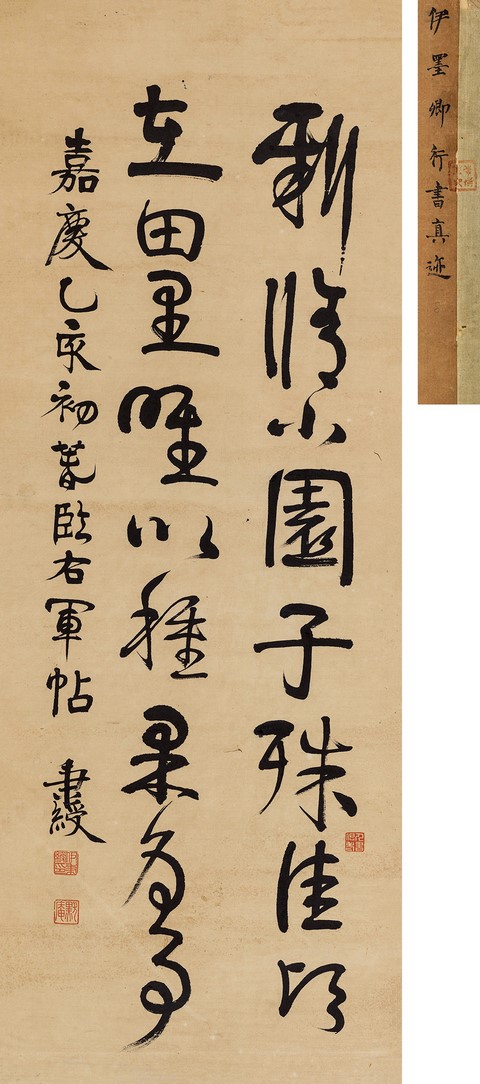 新脩小園子殊佳頃
在田里唯以種果為事
嘉慶乙亥初春臨右軍帖 秉綬
伊墨卿行書真迹